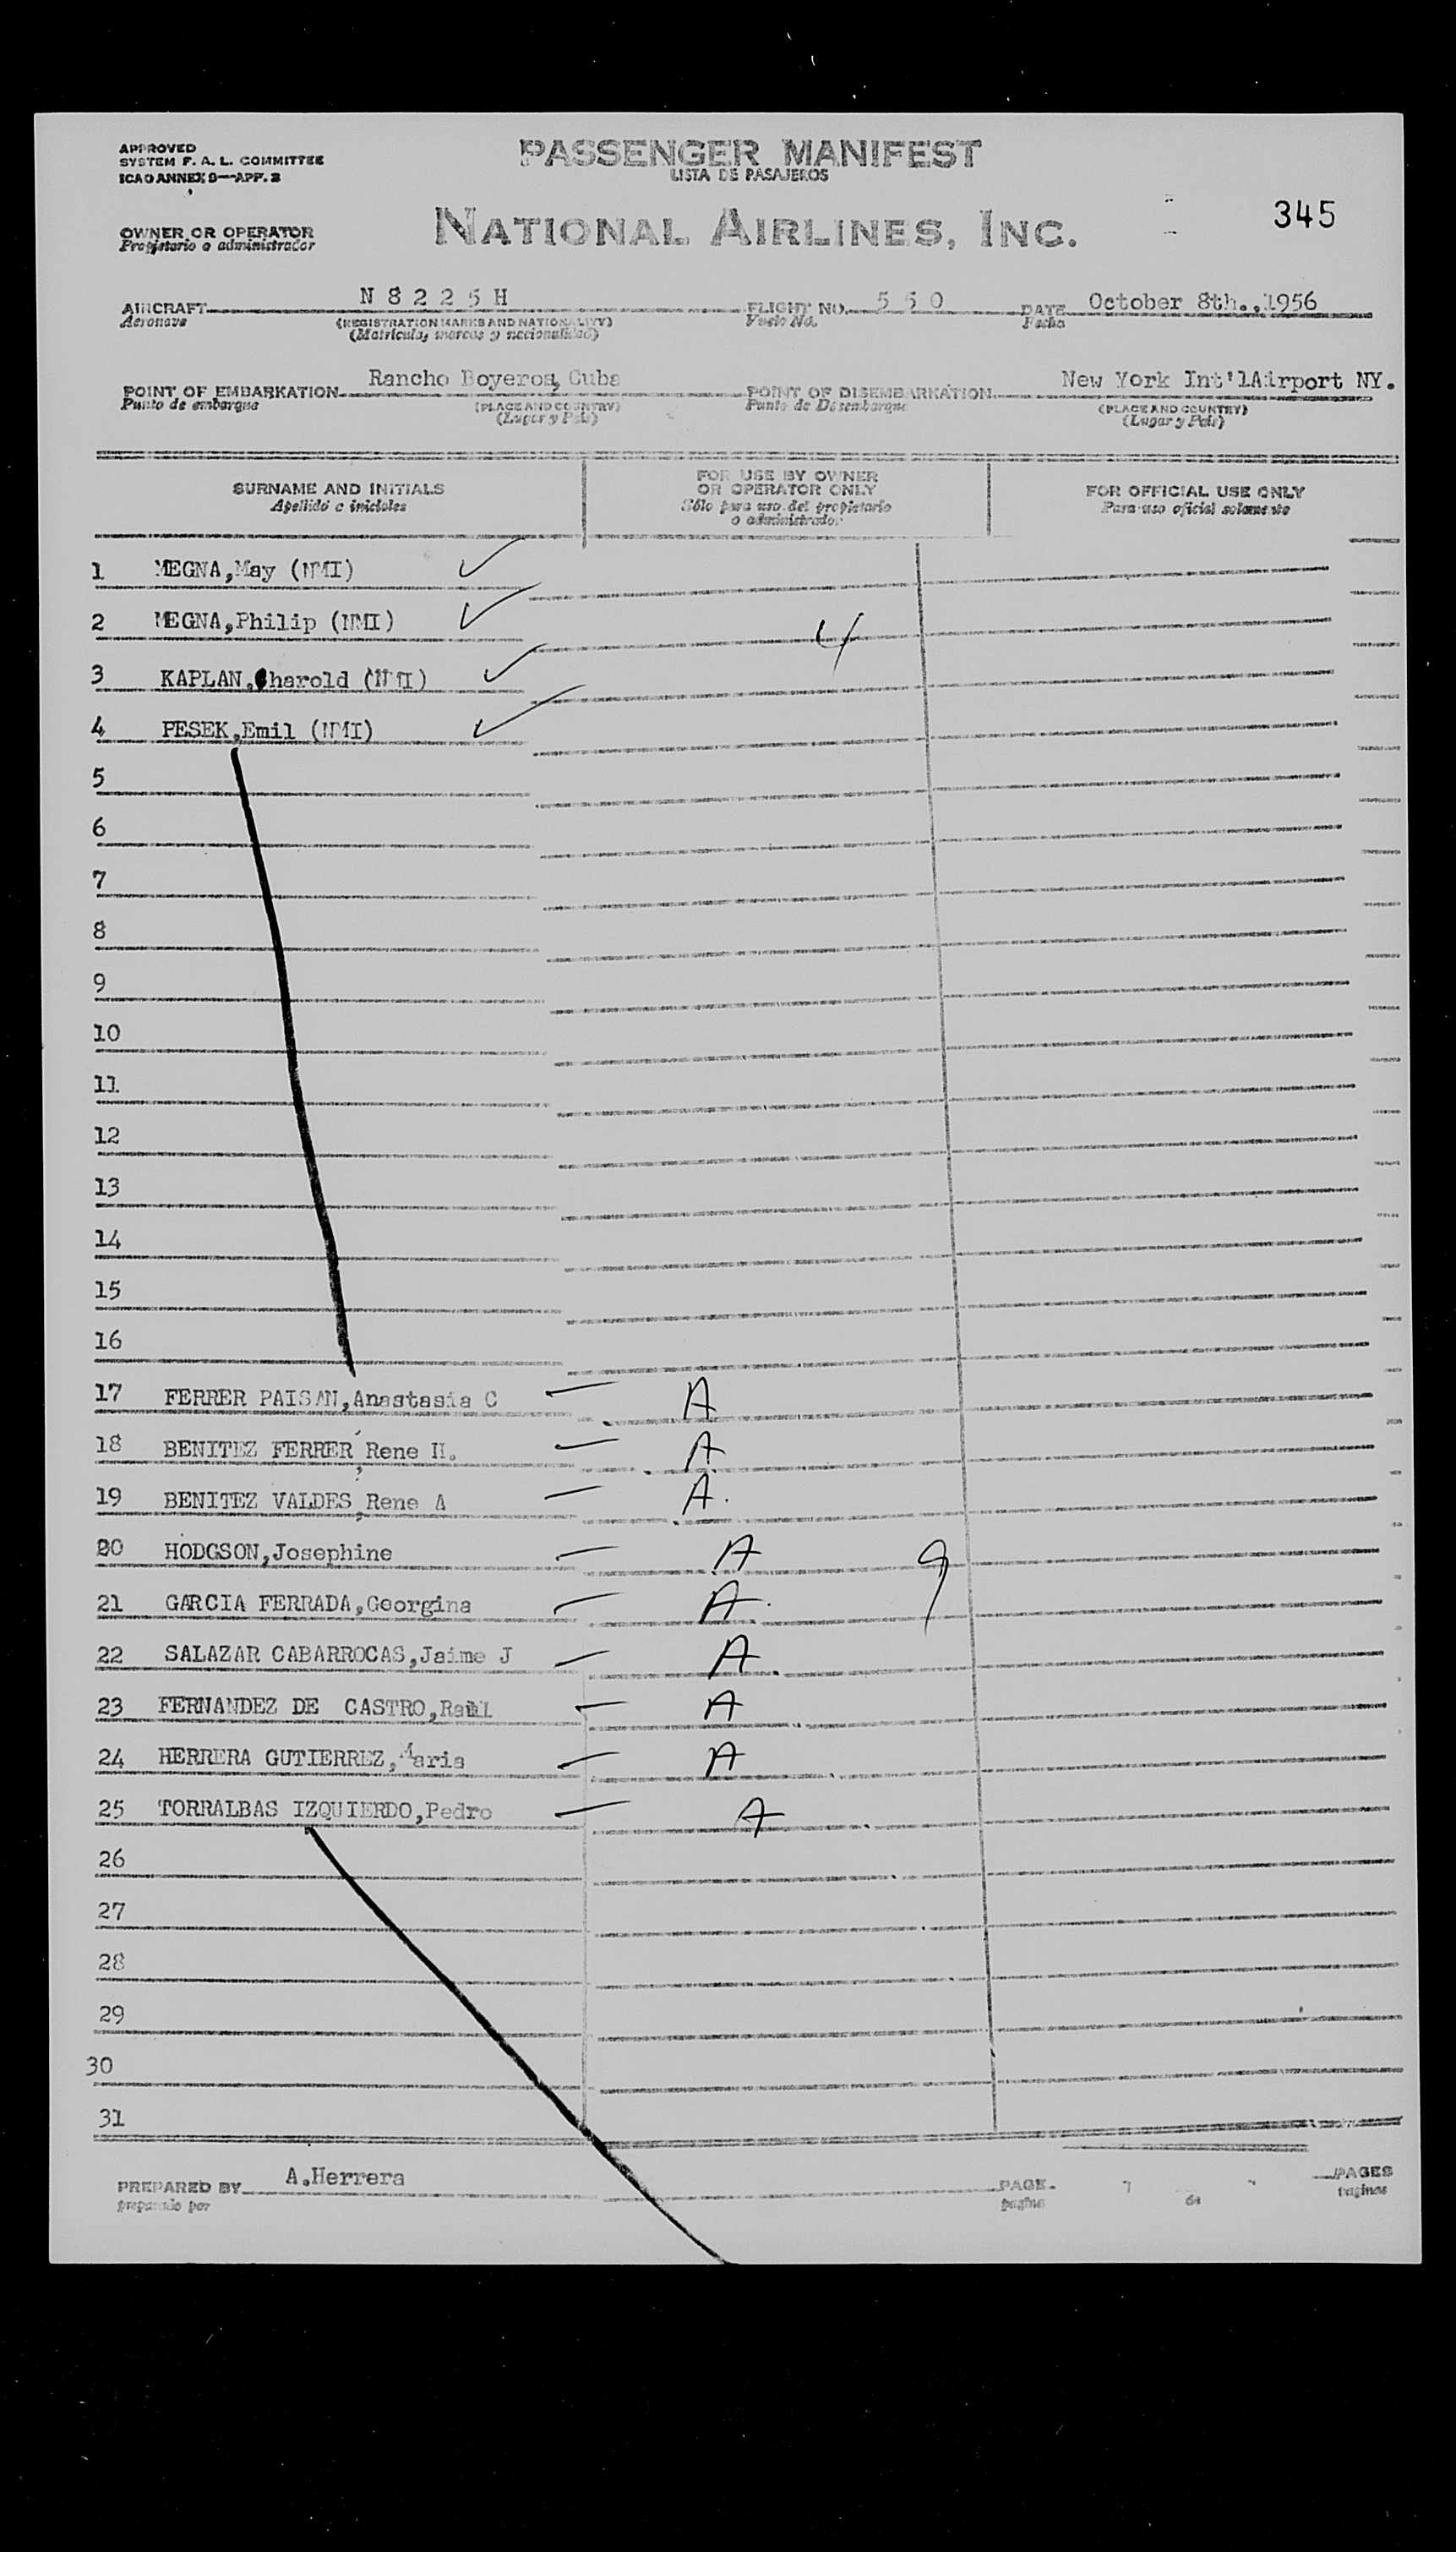 APPROVED
SYSTEM F. A. L. COMMITTEE
ICAO ANNEX 9—APP. 3
PASSENGER MANIFEST
LISTA DE PASAJEROS
345
OWNER OR OPERATOR
Propietario o administrador
NATIONAL AIRLINES, INC.
AIRCRAFT N 8 2 2 5 H FLIGHT NO. 5 5 0 DATE October 8th.,1956
Aeronave (REGISTRATION MARKS AND NATIONALITY) Vuelo No. Fecha
(Matricula, marcas y nacionalidad)
POINT OF EMBARKATION Rancho Boyeros, Cuba POINT OF DISEMBARKATION New York Int'lAirport NY.
Punto de embarque (PLACE AND COUNTRY) Punto de Desembarque (PLACE AND COUNTRY)
(Lugar y País) (Lugar y País)
SURNAME AND INITIALS
Apellido e iniciales
FOR USE BY OWNER
OR OPERATOR ONLY
Sólo para uso del propietario
o administrador
FOR OFFICIAL USE ONLY
Para uso oficial solamente
1 MEGNA,May (NMI)
2 MEGNA,Philip (NMI) 4
3 KAPLAN, harold (NMI)
4 PESEK,Emil (NMI)
5
6
7
8
9
10
11
12
13
14
15
16
17 FERRER PAISAN,Anastasia C A
18 BENITEZ FERRER, Rene H. A
19 BENITEZ VALDES, Rene A A.
20 HODGSON,Josephine A 9
21 GARCIA FERRADA,Georgina A.
22 SALAZAR CABARROCAS,Jaime J A
23 FERNANDEZ DE CASTRO,Raul A
24 HERRERA GUTIERREZ,Maria A
25 TORRALBAS IZQUIERDO,Pedro A
26
27
28
29
30
31
PREPARED BY A.Herrera PAGE PAGES
preparado por pagina de paginas